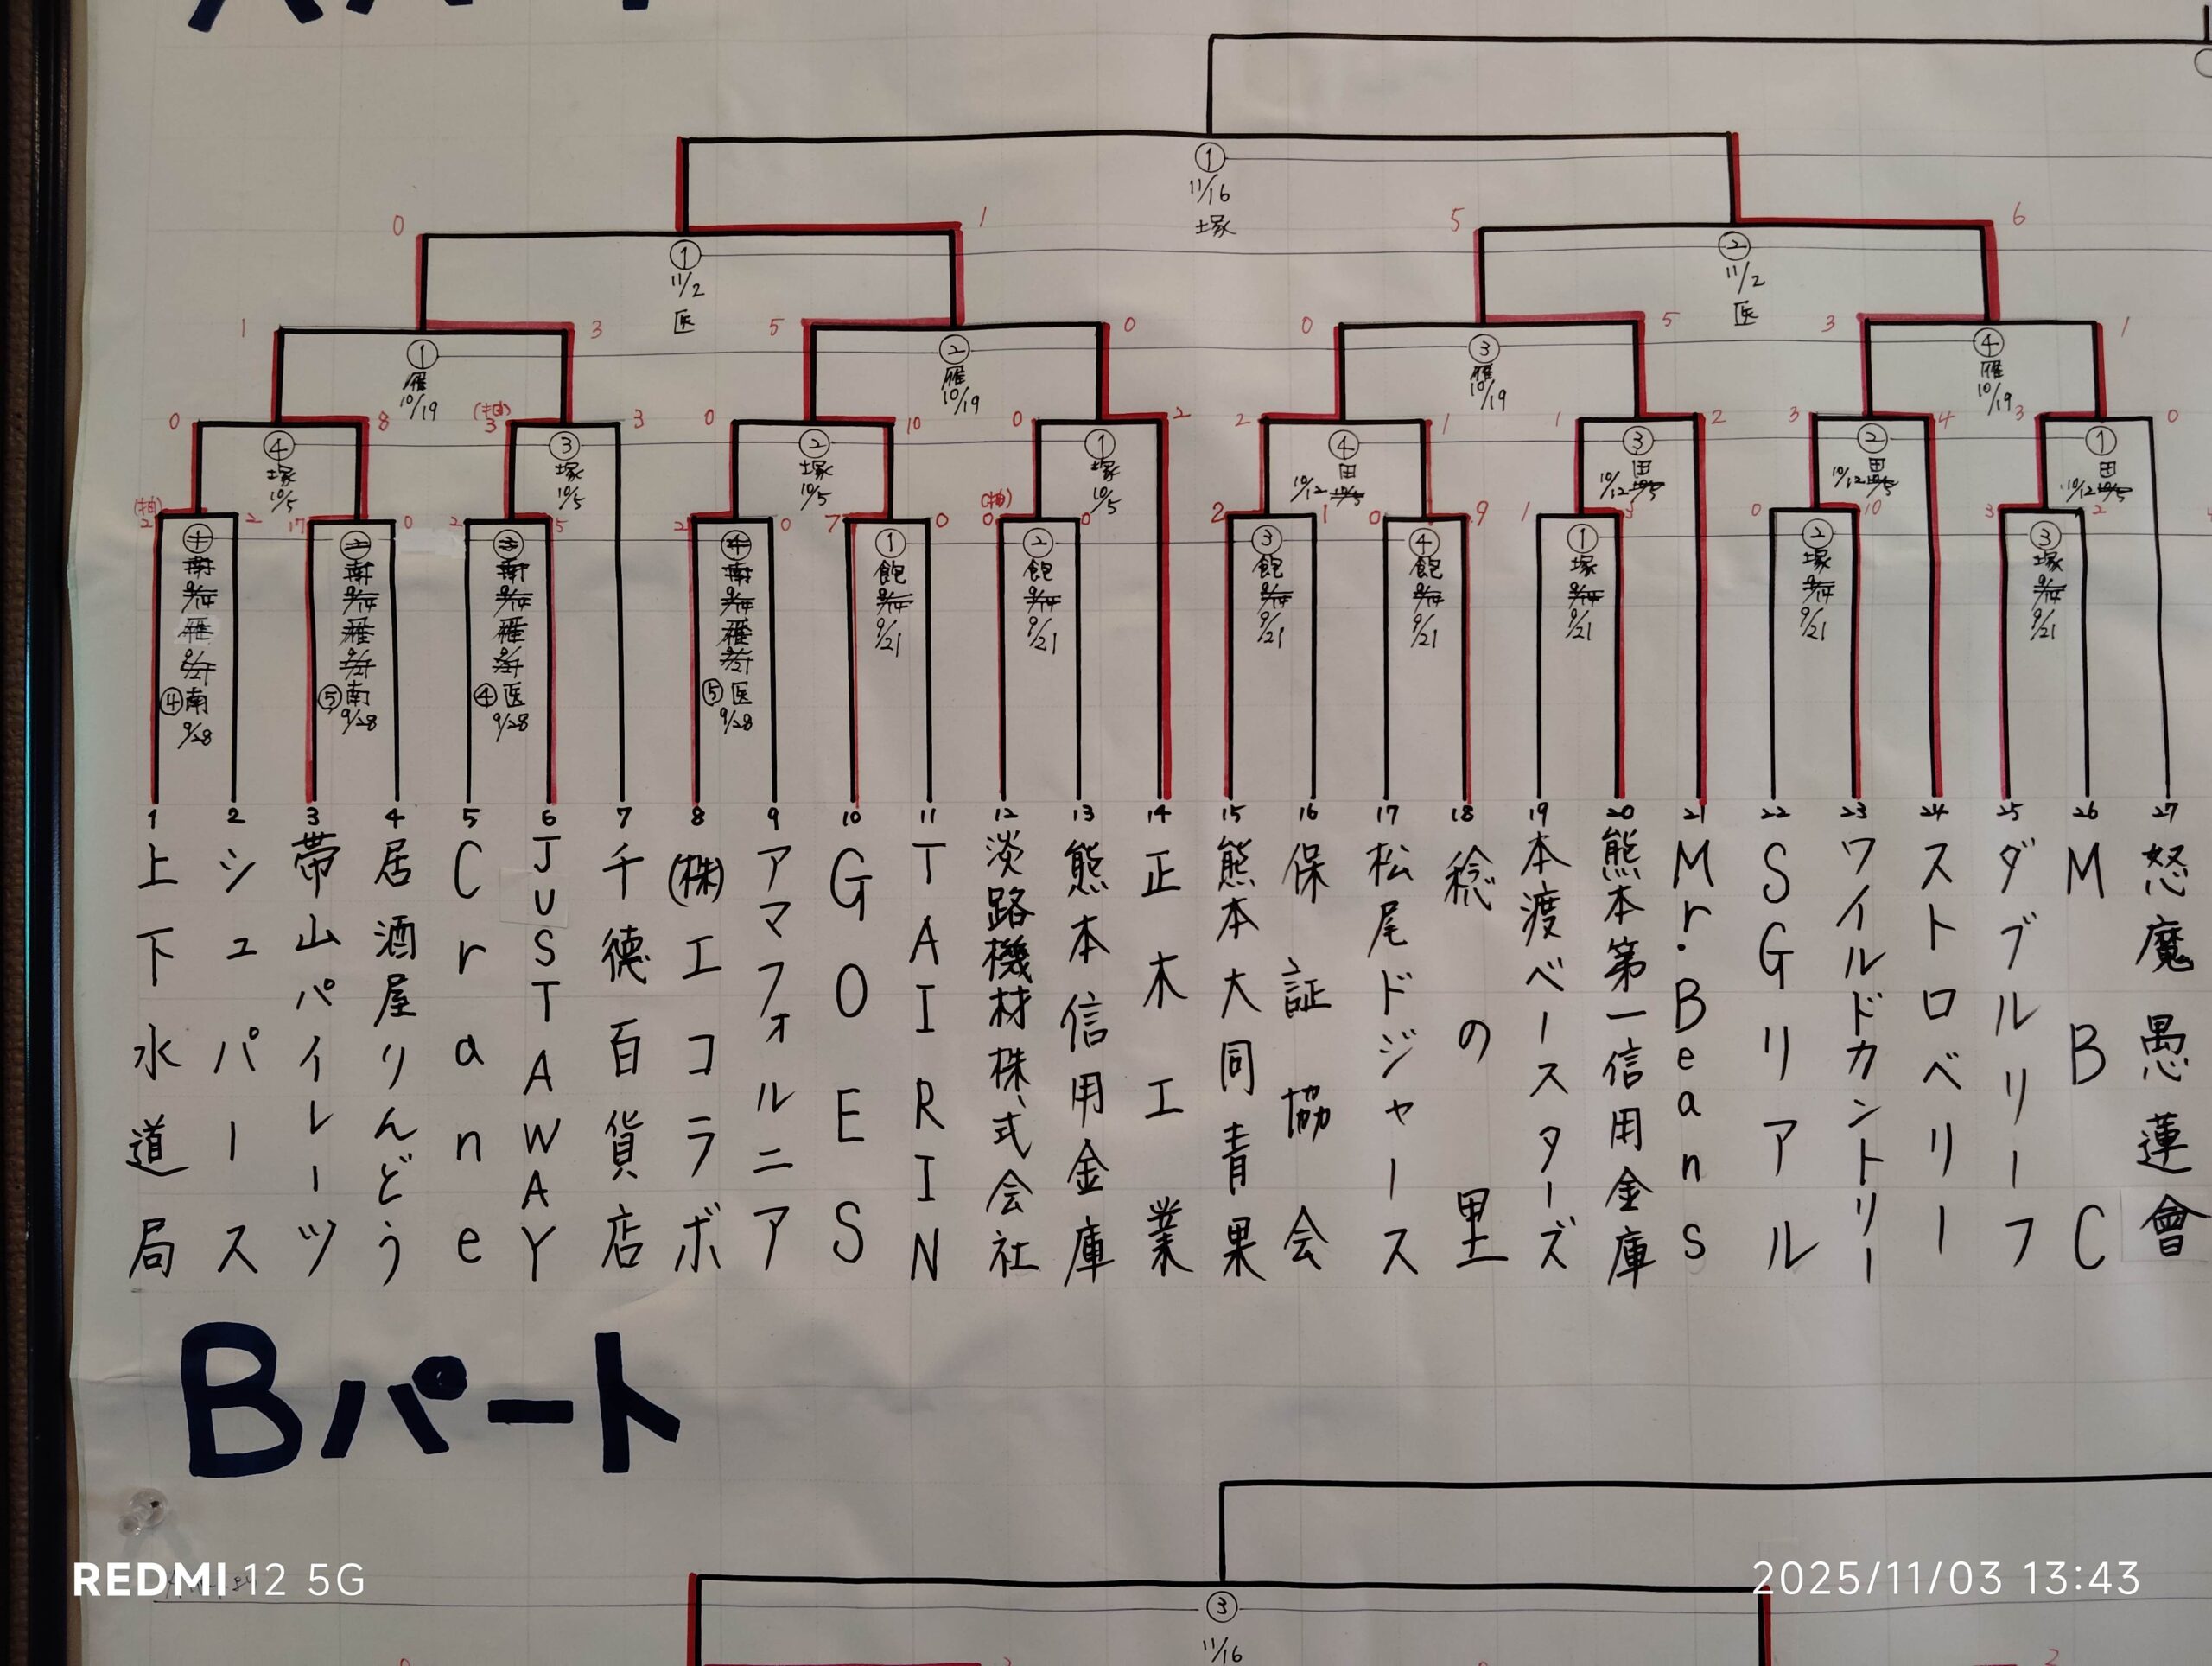 ①
11/16
塚
0
1
5
6
①
11/2
医
②
11/2
医
1
3
5
0
0
5
3
1
①
雁
10/19
②
雁
10/19
③
雁
10/19
④
雁
10/19
0
8
(抽)
3
3
0
10
0
2
2
1
1
2
3
4
3
0
④
塚
10/5
③
塚
10/5
②
塚
10/5
①
塚
10/5
④
田
10/12
③
田
10/12
②
田
10/12
①
田
10/12
(抽)
2
2
17
0
2
5
2
0
7
0
(抽)
0
0
2
1
0
9
1
3
0
10
3
2
④南
9/28
⑤南
9/28
④医
9/28
⑤医
9/28
①
飽
9/21
②
飽
9/21
③
飽
9/21
④
飽
9/21
①
塚
9/21
②
塚
9/21
③
塚
9/21
1 上下水道局
2 シュパース
3 帯山パイレーツ
4 居酒屋りんどう
5 Crane
6 JUSTAWAY
7 千徳百貨店
8 (株)エコラボ
9 アマフォルニア
10 GOES
11 TAIRIN
12 淡路機材株式会社
13 熊本信用金庫
14 正木工業
15 熊本大同青果
16 保証協会
17 松尾ドジャース
18 稔の里
19 本渡ベースターズ
20 熊本第一信用金庫
21 Mr.Beans
22 SGリアル
23 ワイルドカントリー
24 ストロベリー
25 ダブルリーフ
26 MBC
27 怒魔愚蓮會
Bパート
③
11/16
2
REDMI 12 5G
2025/11/03 13:43